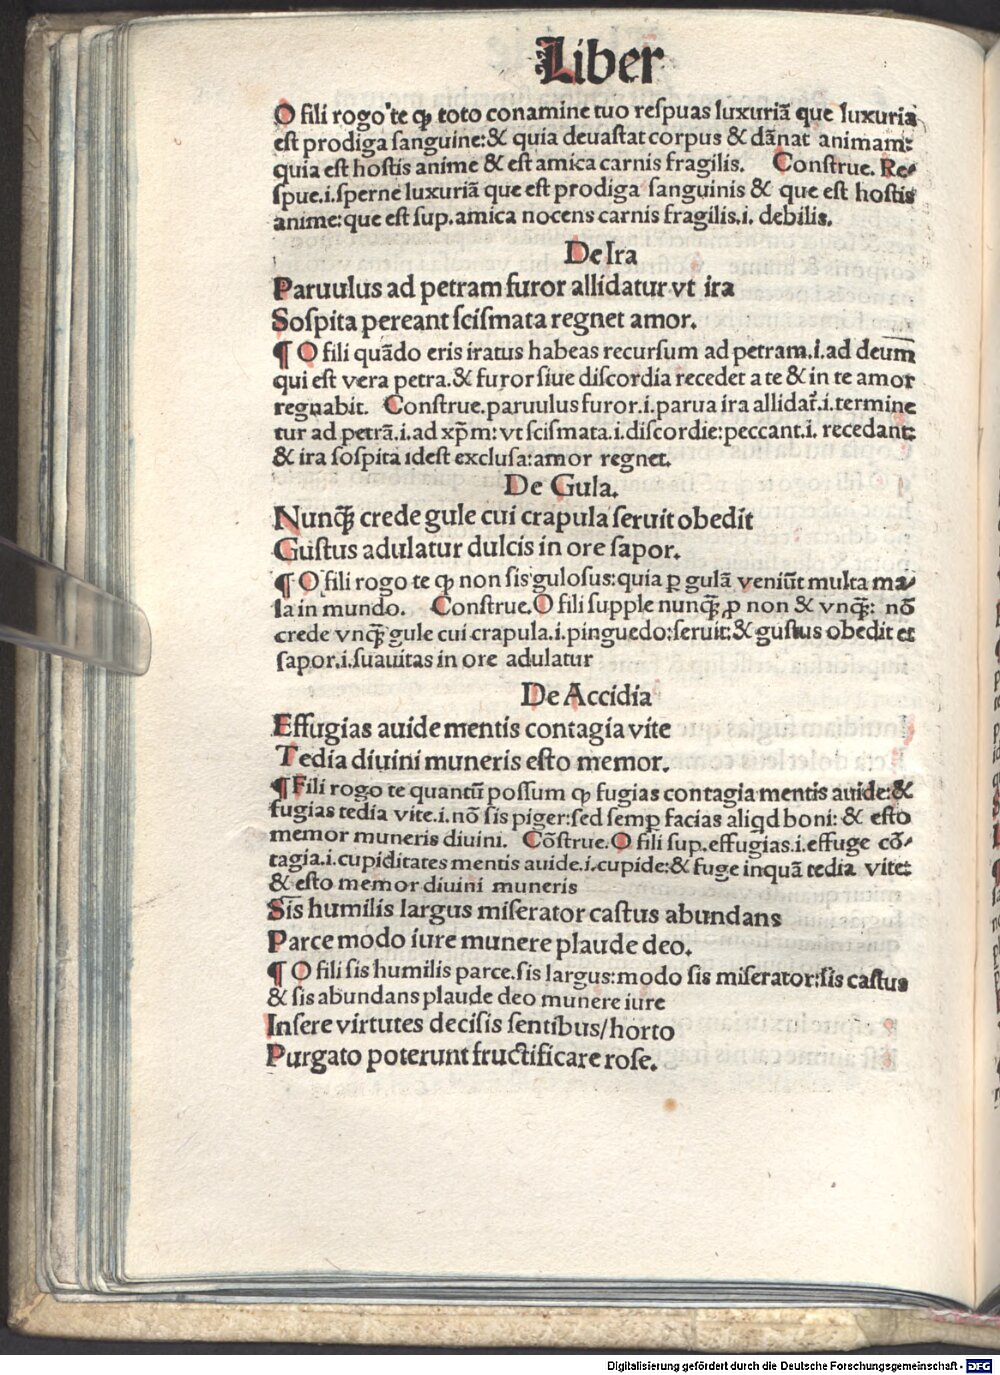 Liber
O fili rogo te ꝙ toto conamine tuo reſpuas luxuriā que luxuria
eſt prodiga ſanguine:& quia deuaſtat corpus & dānat animam:
quia eſt hoſtis anime & eſt amica carnis fragilis. Conſtrue. Re⸗
ſpue.i.ſperne luxuriā que eſt prodiga ſanguinis & que eſt hoſtis
anime:que eſt ſup.amica nocens carnis fragilis.i. debilis.
De Ira
Paruulus ad petram furor allidatur vt ira
Soſpita pereant ſciſmata regnet amor.
¶ O fili quādo eris iratus habeas recurſum ad petram.i.ad deum
qui eſt vera petra.& furor ſiue diſcordia recedet a te & in te amor
regnabit. Conſtrue.paruulus furor.i.parua ira allidat᷑.i.termine
tur ad petrā.i.ad xp̄m:vt ſciſmata.i.diſcordie:peccant.i. recedant:
& ira ſoſpita idest excluſa:amor regnet.
De Gula.
Nunꝙ̄ crede gule cui crapula ſeruit obedit
Guſtus adulatur dulcis in ore ſapor.
¶ O fili rogo te ꝙ non ſis guloſus:quia ꝑ gulā veniūt multa ma⸗
la in mundo. Conſtrue.O fili ſupple nunꝙ̄ ꝓ non & vnꝙ̄: nō
crede vnꝙ̄ gule cui crapula.i.pinguedo:ſeruit:& guſtus obedit et
ſapor.i.ſuauitas in ore adulatur
De Accidia
Effugias auide mentis contagia vite
Tedia diuini muneris eſto memor.
¶ Fili rogo te quantū poſſum ꝙ fugias contagia mentis auide:&
fugias tedia vite.i.nō ſis piger:ſed ſemꝑ facias aliqd boni: & eſto
memor muneris diuini. Cōſtrue.O fili ſup.effugias.i.effuge cō⸗
tagia.i.cupiditates mentis auide.i.cupide:& fuge inquā tedia vite:
& eſto memor diuini muneris
Sis humilis largus miſerator caſtus abundans
Parce modo iure munere plaude deo.
¶ O fili ſis humilis parce.ſis largus:modo ſis miſerator:ſis caſtus
& ſis abundans plaude deo munere iure
Inſere virtutes deciſis ſentibus/horto
Purgato poterunt fructificare roſe.
Digitalisierung gefördert durch die Deutsche Forschungsgemeinschaft - DFG